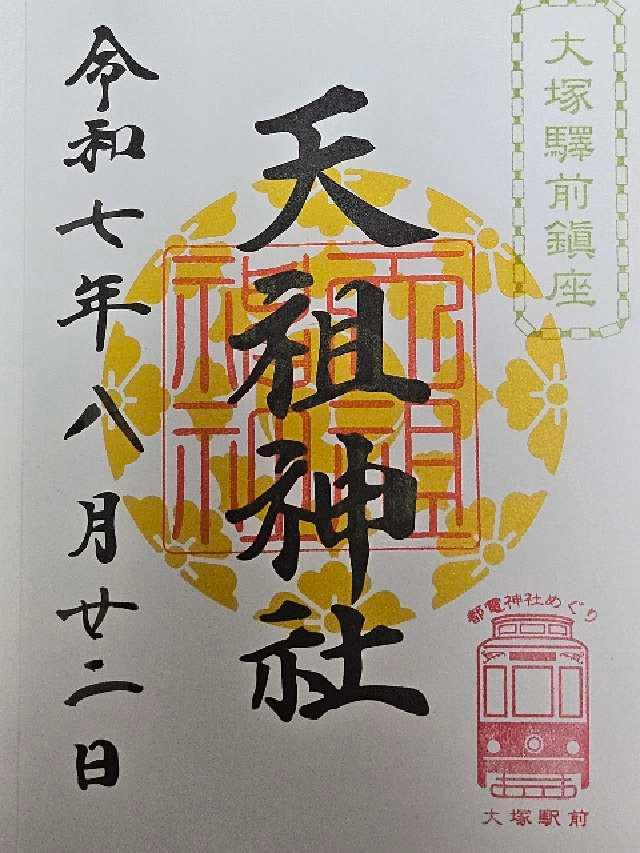 大塚驛前鎮座
天祖神社
天祖神社
令和七年八月廿二日
都電神社めぐり
大塚駅前